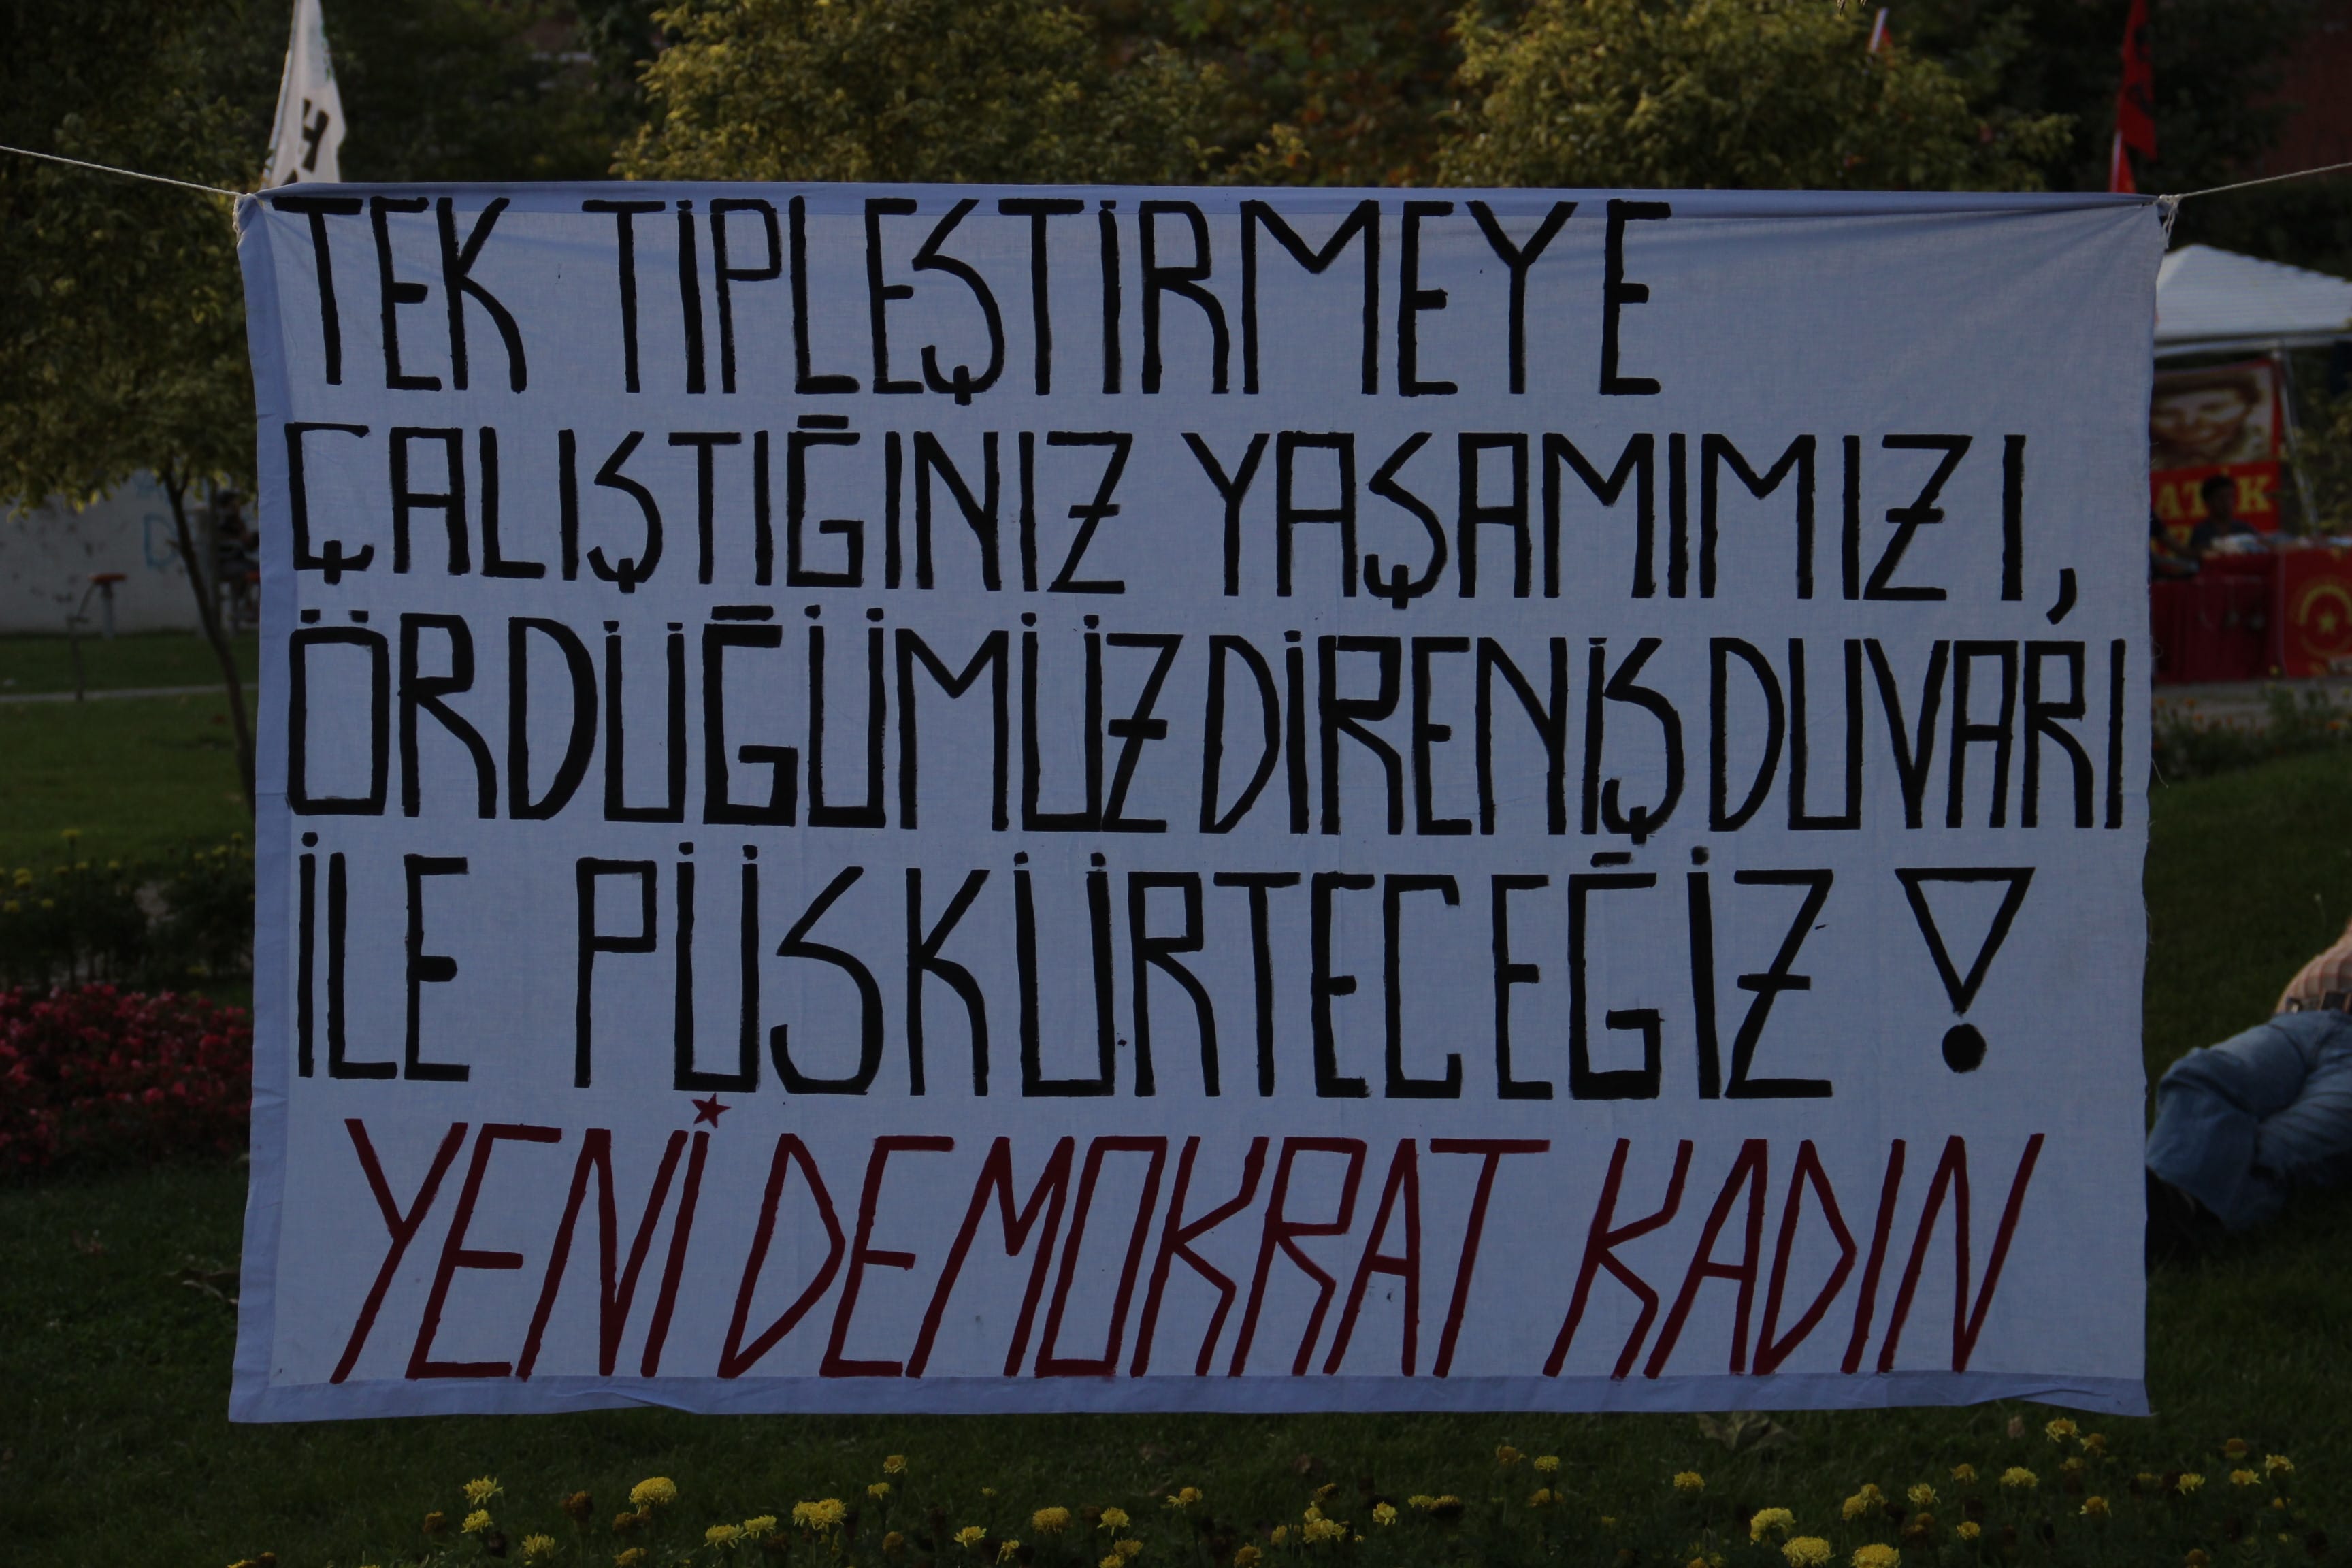 TEK TİPLEŞTİRMEYE
ÇALIŞTIĞINIZ YAŞAMIMIZI,
ÖRDÜĞÜMÜZ DİRENİŞ DUVARI
İLE PÜSKÜRTECEĞİZ!
YENİ DEMOKRAT KADIN